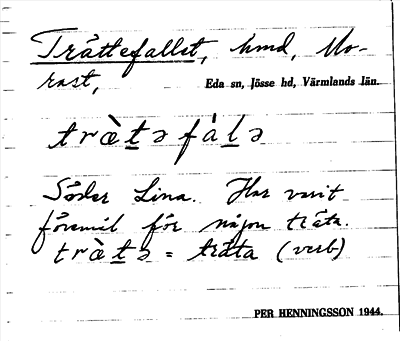 Trättefallet, hmd, Mo-
rast,
Eda sn, Jösse hd, Värmlands län.
trὰ̈tə fàlə
Söder Lina. Har varit
föremål för någon träta.
trὰ̈tə = träta (verb)
PER HENNINGSSON 1944.